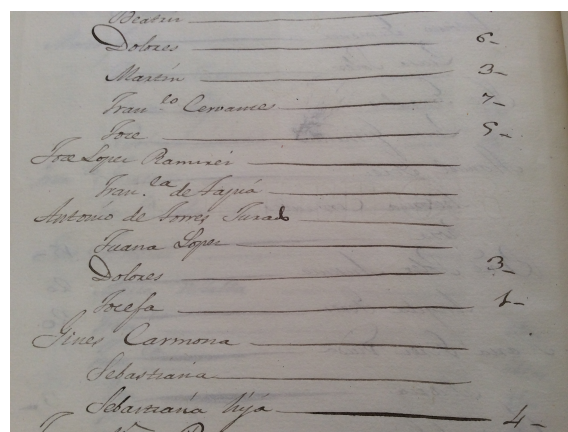 Beatriz
Dolores 6-
Martin 3-
Fran.co Cervantes 7-
Jose 5-
Jose Lopez Ramirez
Fran.ca de Tapia
Antonio de Torres Jurado
Juana Lopez
Dolores 3-
Josefa 1-
Gines Carmona
Sebastiana
Sebastiana hija 4-